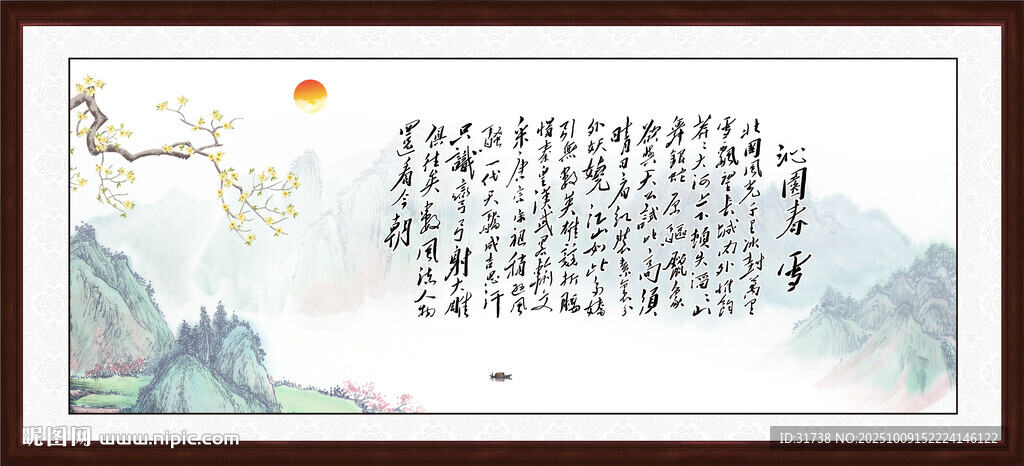 沁園春 雪
北國風光千里冰封萬里
雪飄望長城內外惟餘
莽々大河上下頓失滔々山
舞銀蛇原驅臘象
欲與天公試比高須
晴日看紅裝素裹分
外妖嬈江山如此多嬌
引無數英雄競折腰
惜秦皇漢武略輸文
采唐宗宋祖稍遜風
騷一代天驕成吉思汗
只識彎弓射大雕
俱往矣數風流人物
還看今朝
昵图网 www.nipic.com
ID:31738 NO:20251009152224146122